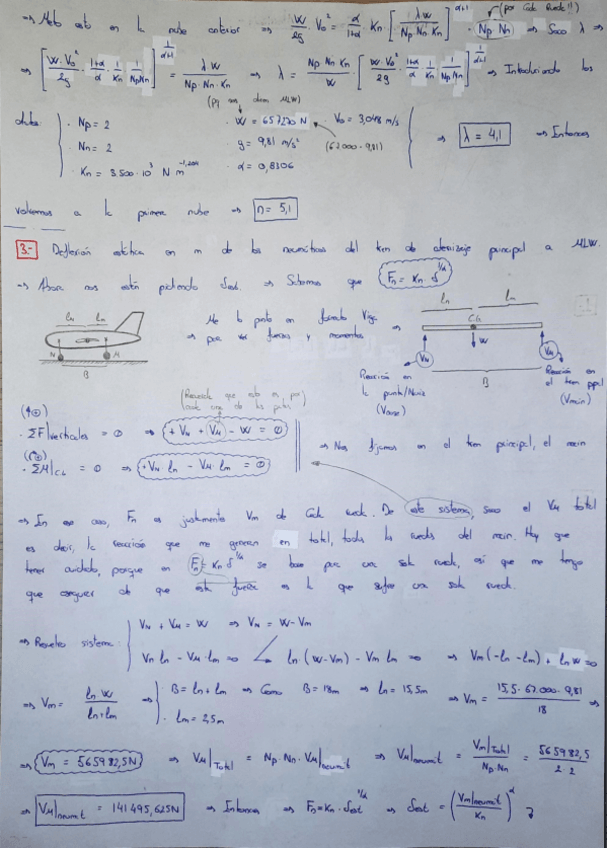 ⇒ Meto esto en la nube anterior ⇒ W/2g · V₀² = α/(1+α) Kn [λW/(Np Nn Kn)]^(α+1) · (Np Nn) ⇒ Saco λ ⇒
(por cada rueda!!)
⇒ [W·V₀²/2g · (1+α)/α · 1/Kn · 1/(NpNn)]^(1/(α+1)) = λ·W/(Np·Nn·Kn) ⇒ λ = Np·Nn·Kn/W · [W·V₀²/2g · (1+α)/α · 1/Kn · 1/(NpNn)]^(1/(α+1)) ⇒ Introduciendo los
datos
(MLW)
· Np = 2 · W = 657270 N · V₀ = 3,048 m/s
· Nn = 2 · g = 9,81 m/s² (67000 · 9,81) ⇒ λ = 4,1 ⇒ Entonces
· Kn = 3500·10³ N m^-1,204 · α = 0,8306
volvemos a la primera nube ⇒ n = 5,1
3.- Deflexión estática en m de los neumáticos del tren de aterrizaje principal a MLW.
→ Ahora nos están pidiendo δest. ⇒ Sabemos que Fn = Kn δ^(1/α)
ln lm
N M
B
Me lo pinto en formato Viga para ver fuerzas y momentos ⇒
ln lm
CG
VN W VM
B
Reacción en la punta/Nariz (Vnose)
Reacción en el tren ppal (Vmain)
(Recuerda que esto es por cada una de las patas)
(↑⊕)
· ΣF|verticales = 0 ⇒ +VN + VM - W = 0
· ΣM|CG = 0 ⇒ +VN ln - VM · lm = 0
⇒ Nos fijamos en el tren principal, el main
⇒ En ese caso, Fn es justamente Vm de cada rueda. De este sistema, saco el VM total
es decir, la reacción que me generan en total, todas las ruedas del main. Hay que
tener cuidado, porque en Fn = Kn δ^(1/α) se hace por una sola rueda, así que me tengo
que asegurar de que esta fuerza es la que sufre una sola rueda.
⇒ Resuelvo sistema
VN + VM = W ⇒ VN = W - Vm
Vn ln - VM · lm = 0 ln · (W - Vm) - Vm lm = 0 ⇒ Vm (-ln - lm) + ln W = 0
⇒ Vm = ln W/(ln+lm) ⇒ B = ln + lm ⇒ Como B = 18m ⇒ ln = 15,5m ⇒ Vm = 15,5 · 67.000 · 9,81/18 ⇒
lm = 2,5m
⇒ Vm = 565982,5N ⇒ VM|Total = Np · Nn · VM|neumát ⇒ VM|neumát = Vm|Total/(Np · Nn) = 565982,5/(2·2)
⇒ VM|neumát = 141495,625N ⇒ Entonces ⇒ Fn = Kn · δest^(1/α) ⇒ δest = (Vm|neumát/Kn)^α